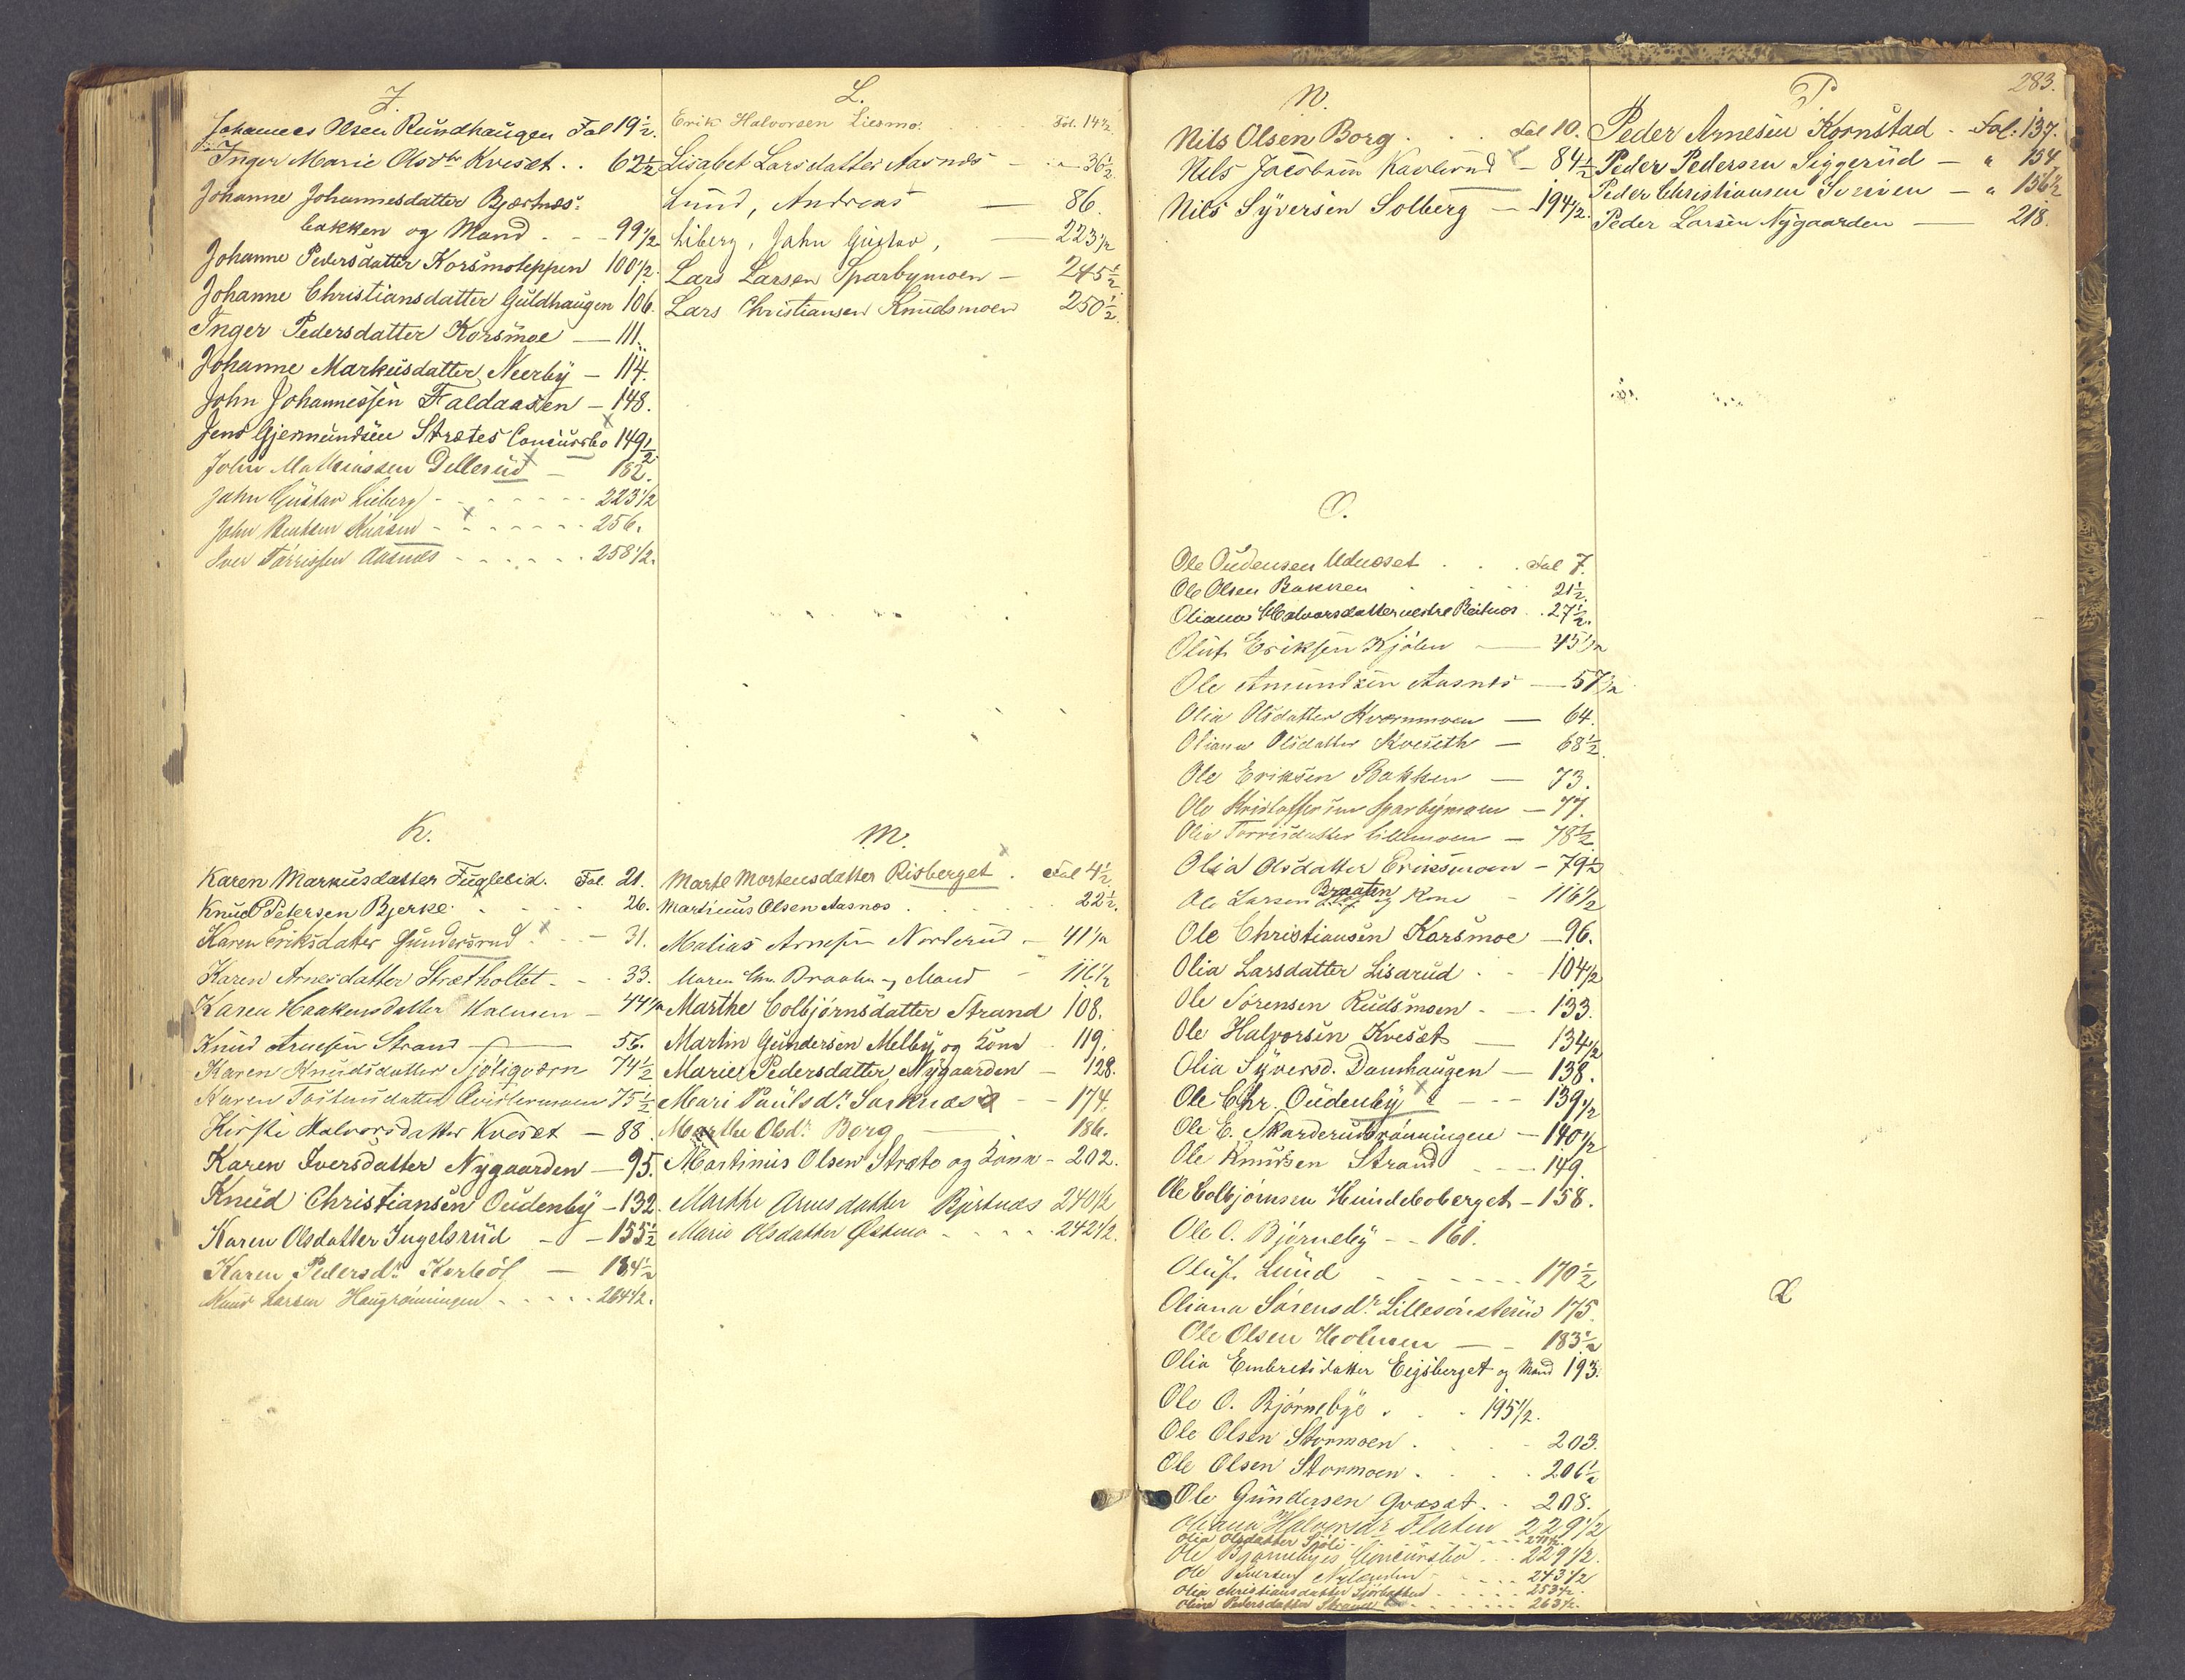 J.
Johannes Olsen Rundhaugen Fol 19½.
Inger Marie Olsdtr Kveset . . 62½
Johanne Johannesdatter Bjertnæs-
bakken og Mand . - - 99½
Johanne Pedersdatter Korsmoteppen 100½.
Johanne Christiansdatter Guldhaugen 106.
Inger Pedersdatter Korsmoe — 111.
Johanne Markusdatter Neerby — 114.
John Johannessen Faldaasen — 148.
Jens Gjermundsen Strætes Concursbo 149½
John Mathiassen Dellerud — 182.
Jahn Gustav Lieberg - - - - - - 223½
John Knasen - - - - - - 256.
Iver Tørrissen Aasnæs - - - - - . 258½.
K.
Karen Markusdatter Fuglelid. Fol. 21.
Knud Petersen Bjerke . . . 26.
Karen Eriksdatter Gundersrud . - 31.
Karen Arnesdatter Strætholtet - - 33.
Karen Haakensdatter Holmen — 44½
Knud Arnesen Strand — 56.
Karen Knudsdatter Sjøligværn 74½
Karen Tostensdatter 75½
Kirsti Halvorsdatter Kveset — 88.
Karen Iversdatter Nygaarden — 95.
Knud Christiansen Oudenby — 132.
Karen Olsdatter Ingelsrud - - 155½
Karen Pedersdr Kerböl — 184½
Knud Larsen Haugrönningen . - - . . 264½.
L.
Erik Halvorsen Liesmo. . . Fol. 14½.
Lisabet Larsdatter Aasnæs — . - 36½
Lund, Andreas — 86.
Liberg, Jahn Gustav, — 223½
Lars Larsen Sparbymoen — 245½
Lars Christiansen Knudsmoen 250½.
M.
Marte Mortensdatter Risberget . Fol 4½
Martinus Olsen Aasnæs . . . . 22½.
Matias Arnesen Norderud . - 41½
Maren Braaten og Mand - 116½
Marthe Colbjørnsdatter Strand 108.
Martin Gundersen Melby og Kone . 119.
Marie Pedersdatter Nygaarden — 128.
Mari Paulsdr Sorknæs - - 174.
Marthe Olsdr Berg — 186.
Martinius Olsen Stræte og Kone - 202.
Marthe Arnesdatter Bjertnæs 240½
Marie Olsdatter Østmo - - - - . 242½.
N.
Nils Olsen Borg . . . Fol 10.
Nils Jacobsen Kaverud — 84½
Nils Syversen Solberg — 194½.
O.
Ole Oudensen Udnæset . . . Fol 7.
Ole Olsen Bakken . . . 21½.
Oliana Halvorsdatter vestre Reitnes . . 27½.
Oluf Eriksen Kjölen — 45½
Ole Amundsen Aasnes — 57½
Olia Olsdatter Kværnmoen — 64.
Oliana Olsdatter Kveseth — 68½
Ole Eriksen Bakken — 73.
Ole Kristoffersen Sparbymoen — 77.
Olia Torrisdatter Lillemoen — 78½
Olia Olsdatter Eriksmoen — 79½
Ole Larsen Braaten og Kone - 116½
Ole Christiansen Korsmoe — 96.
Olia Larsdatter Lisarud . - - 104½
Ole Sørensen Rudsmoen . - - 133.
Ole Halvorsen Kveset — 134½
Olia Syversd. Damhaugen — 138.
Ole Chr. Oudenby - - - 139½
Ole E. Skarderudrönningen — 140½
Ole Knudsen Strand - - - 149.
Ole Colbjørnsen Hundeboberget — 158.
Ole O. Bjørneby - - 161.
Oluf Lund - - - - - . . 170½
Oliana Sørensdr Lillesönsterud 175.
Ole Olsen Holmen — - 183½
Olia Embretsdatter Eigsberget og Mand 193.
Ole O. Bjørnebye . . . 195½.
Ole Olsen Stormoen . . . . 203.
Ole Olsen Stormoen . . . . 206½
Ole Gundersen Gvæset . . 208.
Oliana Halvorsdr Flaten 229½
Olia Olsdatter Sjöli
Ole Bjørnebyes Concursbo . . . 229½.
Ole Pedersen - - - - 243½
Olia Christiansdatter - - - - 253½.
Oline Pedersdatter Strand - - - - 263½.
P
283.
Peder Arnesen Kornstad . Fol. 137.
Peder Pedersen Siggerud — " 154.
Peder Christiansen Sveiven — " 156½
Peder Larsen Nygaarden — 218.
Q